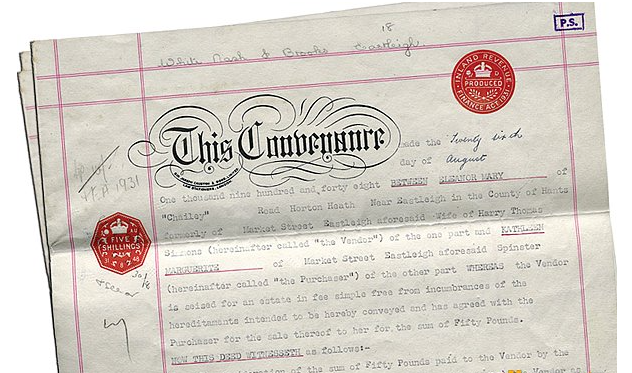 P.S.
18
White Nash & Brooks Eastleigh.
INLAND REVENUE
PRODUCED
FINANCE ACT. 1931.
This Conveyance
made the Twenty sixth
day of August
One thousand nine hundred and forty eight BETWEEN ELEANOR MARY of
"Chailey" Road Horton Heath Near Eastleigh in the County of Hants
formerly of Market Street Eastleigh aforesaid Wife of Harry Thomas
Simmons (hereinafter called "the Vendor") of the one part and KATHLEEN
MARGUERITE of Market Street Eastleigh aforesaid Spinster
(hereinafter called "the Purchaser") of the other part WHEREAS the Vendor
is seized for an estate in fee simple free from incumbrances of the
hereditaments intended to be hereby conveyed and has agreed with the
Purchaser for the sale thereof to her for the sum of Fifty Pounds.
NOW THIS DEED WITNESSETH as follows:-
of the sum of Fifty Pounds paid to the Vendor by the
Vendor as
1931
FIVE
SHILLINGS